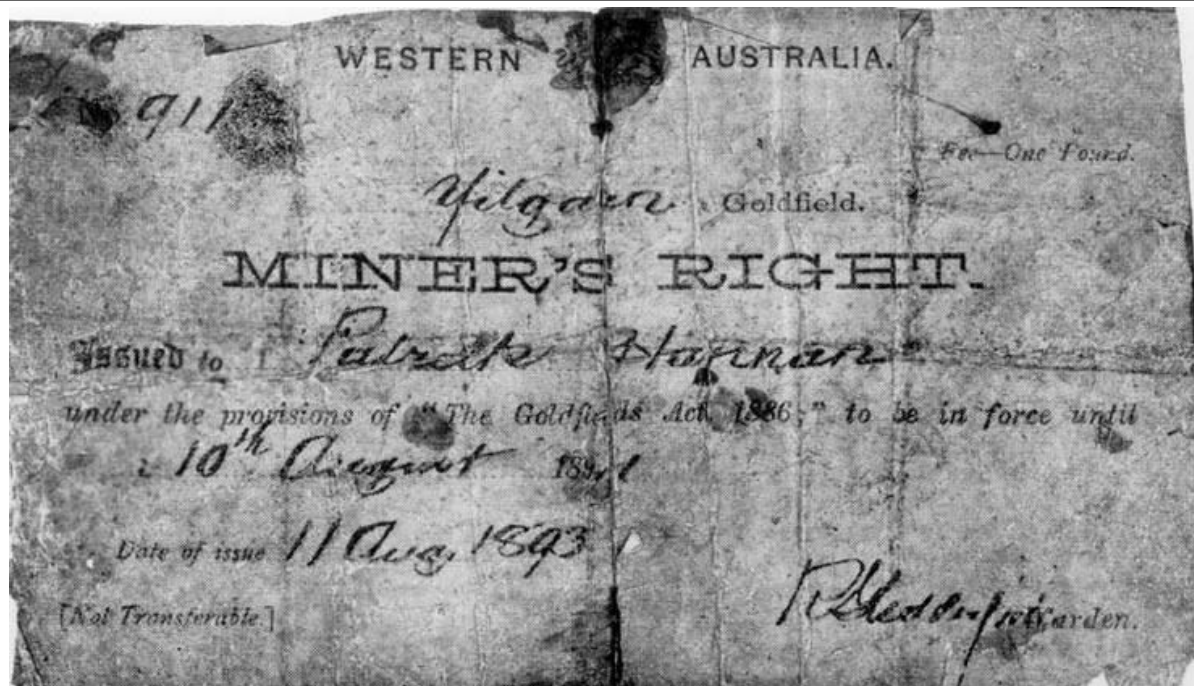 WESTERN AUSTRALIA.
No 911
Fee—One Pound.
Yilgarn Goldfield.
MINER'S RIGHT.
Issued to Patrick Hannan
under the provisions of "The Goldfields Act, 1886," to be in force until
10th August 1894
Date of issue 11 Aug. 1893
[Not Transferable.]
Warden.